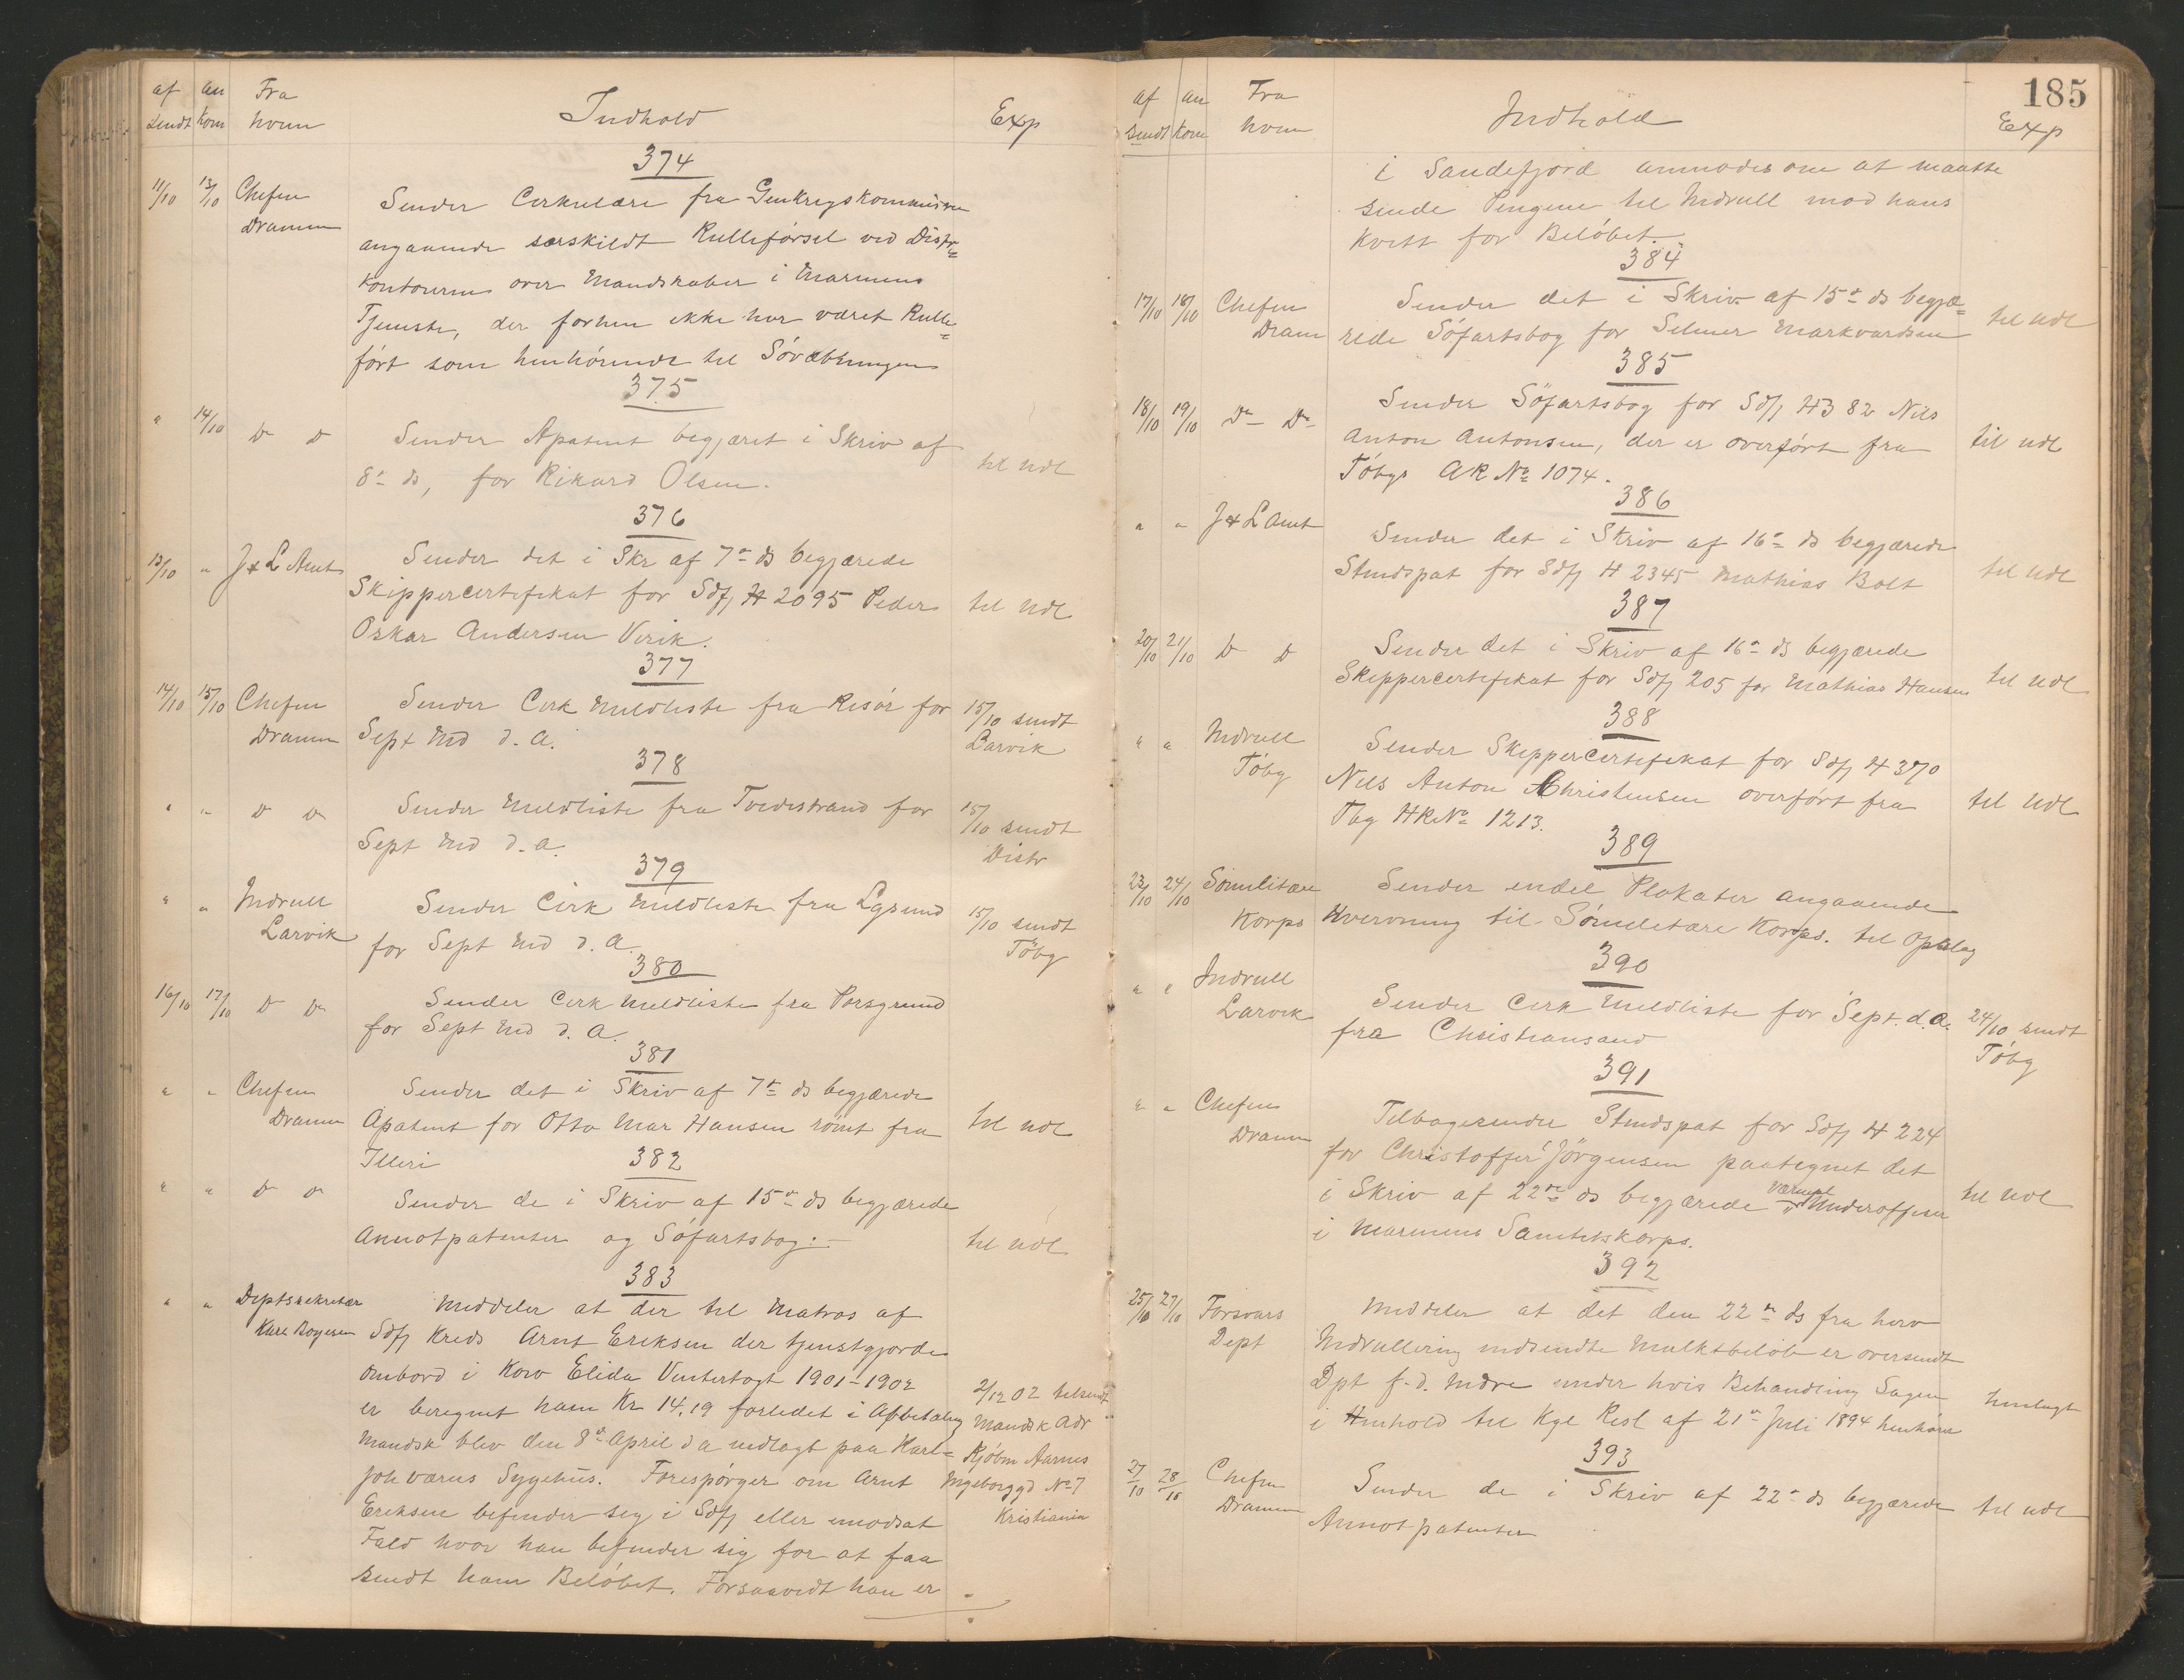 af an Fra Indhold Exp
sendt kom hvem
374
11/10 13/10 Chefen Sender Cirkulære fra Genkrigskommissæren
Dramm angaaende særskildt Rulleförsel ved Distr=
kontorerne over Mandskaber i Marinens
Tjeneste, der forhen ikke har været Rulle=
fört som henhörende til Sövæbningen
375
" 14/10 Do Do Sender Apatent begjæret i Skriv af
8de ds, for Rikard Olsen. til udl
376
13/10 " J & L Amt Sender det i Skr af 7de ds begjærede
Skippercertifikat for Sdfj H 2095 Peder til udl
Oskar Andersen Virik.
377
14/10 15/10 Chefen Sender Cirk Meldliste fra Risör for 15/10 sendt
Dramm Sept Md d. A. Larvik
378
" " Do Do Sender Meldliste fra Tvedestrand for 15/10 sendt
Sept Md d. a. Distr
379
" " Indrull Sender Cirk Meldliste fra Lgsund 15/10 sendt
Larvik for Sept Md d. A. Töbg
380
16/10 17/10 Do Do Sender Cirk Meldliste fra Porsgrund
for Sept Md d. A.
381
" " Chefen Sender det i Skriv af 7de ds begjærede
Dramm Apatent for Otto Mar Hansen römt fra til udl
Illeri
382
" " Do Do Sender de i Skriv af 15de ds begjærede
Annotpatenter og Söfartsbog.– til udl
383
" " Deptssekretær Meddeler at der til Matros af
Karl Bogesen Sdfj Kreds Arnt Eriksen der tjenstgjorde
ombord i Korv Elida Vintertogt 1901–1902 2/12 02 tilsendt
er beregnet ham Kr 14,19 forledet i Afbetaling Mandsk Adr
Mandsk blev den 8de April d a indlagt paa Karl= Kjöbm Aarnes
Johsværns Sygehus. Forespörger om Arnt Ingeborggd No 7
Eriksen befinder sig i Sdfj eller imodsat Kristiania
Fald hvor han befinder sig for at faa
sendt ham Belöbet. Forsaavidt han er
185
af an Fra Indhold Exp
sendt kom hvem
i Sandefjord anmodes om at maatte
sende Pengene til Indrull mod hans
Kvitt for Belöbet.
384
17/10 18/10 Chefen Sender det i Skriv af 15de ds begjæ=
Dram rede Söfartsbog for Selmer Markvardsen til udl
385
18/10 19/10 Do – Do – Sender Söfartsbog for Sdfj H 382 Nils
Anton Antonsen, der er overfört fra til udl
Töbgs AR No 1074.
386
" " J & L Amt Sender det i Skriv af 16de ds begjærede
Stmdspat for Sdfj H 2345 Mathias Bolt til udl
387
20/10 21/10 Do Do Sender det i Skriv af 16de ds begjærede
Skippercertifikat for Sdfj 205 for Mathias Hansen til udl
388
" " Indrull Sender Skippercertifikat for Sdfj H 370
Töbg Nils Anton Christensen overfört fra til udl
Tbg HR No 1213.
389
23/10 24/10 Sömilitære Sender endel Plakater angaaende
Korps Hvervning til Sömilitære Korps. til Opslag
390
" " Indrull Sender Cirk Meldliste for Sept. d.A. 24/10 sendt
Larvik fra Christiansand Töbg
391
" " Chefen Tilbagesender Stmdspat for Sdfj H 224
Dramm for Christoffer Jörgensen paategnet det
i Skriv af 22de ds begjærede Værnepl Underofficer til udl
i Marinens Sanitetskorps.
392
25/10 27/10 Forsvars Meddeler at det den 22de ds fra herv
Dept Indrullering indsendte Mulktbelöb er oversendt
Dpt f. d. Indre under hvis Behandling Sagen henlagt
i Henhold til Kgl Resl af 21de Juli 1894 henhörer
393
27/10 28/10 Chefen Sender de i Skriv af 22de ds begjærede til udl
Dramm Annotpatenter